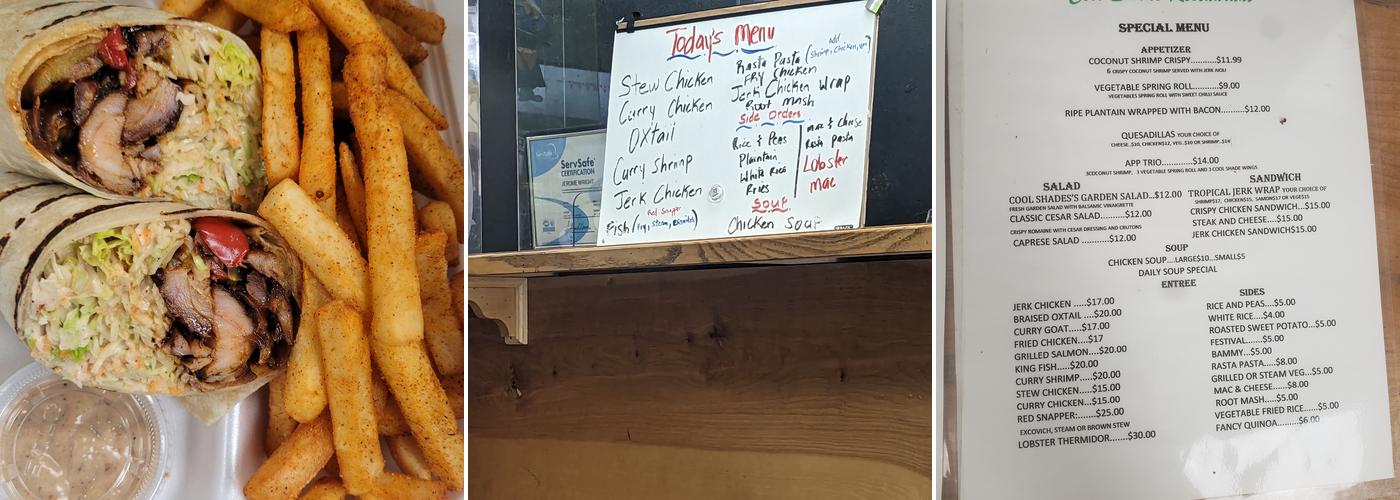 Today's Menu
Stew Chicken
Curry Chicken
Oxtail
Curry Shrimp
Jerk Chicken
Red Snapper
Fish (Fry, Steam,
Rasta Pasta (add
Shrimp, Chicken,
Fry Chicken
Jerk Chicken Wrap
Root mash
Side Orders
Rice & Peas
Plaintain
White Rice
Fries
mac & Cheese
Rasta pasta
Lobster
mac
Soup
Chicken Soup
ServSafe
ServSafe®
CERTIFICATION
JEROME WRIGHT
SPECIAL MENU
APPETIZER
COCONUT SHRIMP CRISPY...........$11.99
6 CRISPY COCONUT SHRIMP SERVED WITH JERK AIOLI
VEGETABLE SPRING ROLL..........$9.00
VEGETABLES SPRING ROLL WITH SWEET CHILLI SAUCE
RIPE PLANTAIN WRAPPED WITH BACON..........$12.00
QUESADILLAS YOUR CHOICE OF
CHEESE..$10, CHICKEN$12, VEG..$10 OR SHRIMP..$14
APP TRIO............$14.00
3COCONUT SHRIMP, 3 VEGETABLE SPRING ROLL AND 3 COOL SHADE WINGS
SALAD
COOL SHADES'S GARDEN SALAD...$12.00
FRESH GARDEN SALAD WITH BALSAMIC VINAIGRETTE
CLASSIC CESAR SALAD.......$12.00
CRISPY ROMAINE WITH CESAR DRESSING AND CRUTONS
CAPRESE SALAD ...........$12.00
SANDWICH
TROPICAL JERK WRAP YOUR CHOICE OF
SHRIMP$17, CHICKEN$15, SAMON$17 OR VEG$15
CRISPY CHICKEN SANDWICH...$15.00
STEAK AND CHEESE.....$15.00
JERK CHICKEN SANDWICH$15.00
SOUP
CHICKEN SOUP....LARGE$10...SMALL$5
DAILY SOUP SPECIAL
ENTREE
JERK CHICKEN .....$17.00
BRAISED OXTAIL ....$20.00
CURRY GOAT.....$17.00
FRIED CHICKEN....$17
GRILLED SALMON...$20.00
KING FISH.....$20.00
CURRY SHRIMP....$20.00
STEW CHICKEN.....$15.00
CURRY CHICKEN...$15.00
RED SNAPPER:......$25.00
EXCOVICH, STEAM OR BROWN STEW
LOBSTER THERMIDOR.......$30.00
SIDES
RICE AND PEAS....$5.00
WHITE RICE....$4.00
ROASTED SWEET POTATO...$5.00
FESTIVAL......$5.00
BAMMY...$5.00
RASTA PASTA.....$8.00
GRILLED OR STEAM VEG...$5.00
MAC & CHEESE....$8.00
ROOT MASH.....$5.00
VEGETABLE FRIED RICE......$5.00
FANCY QUINOA......$6.00